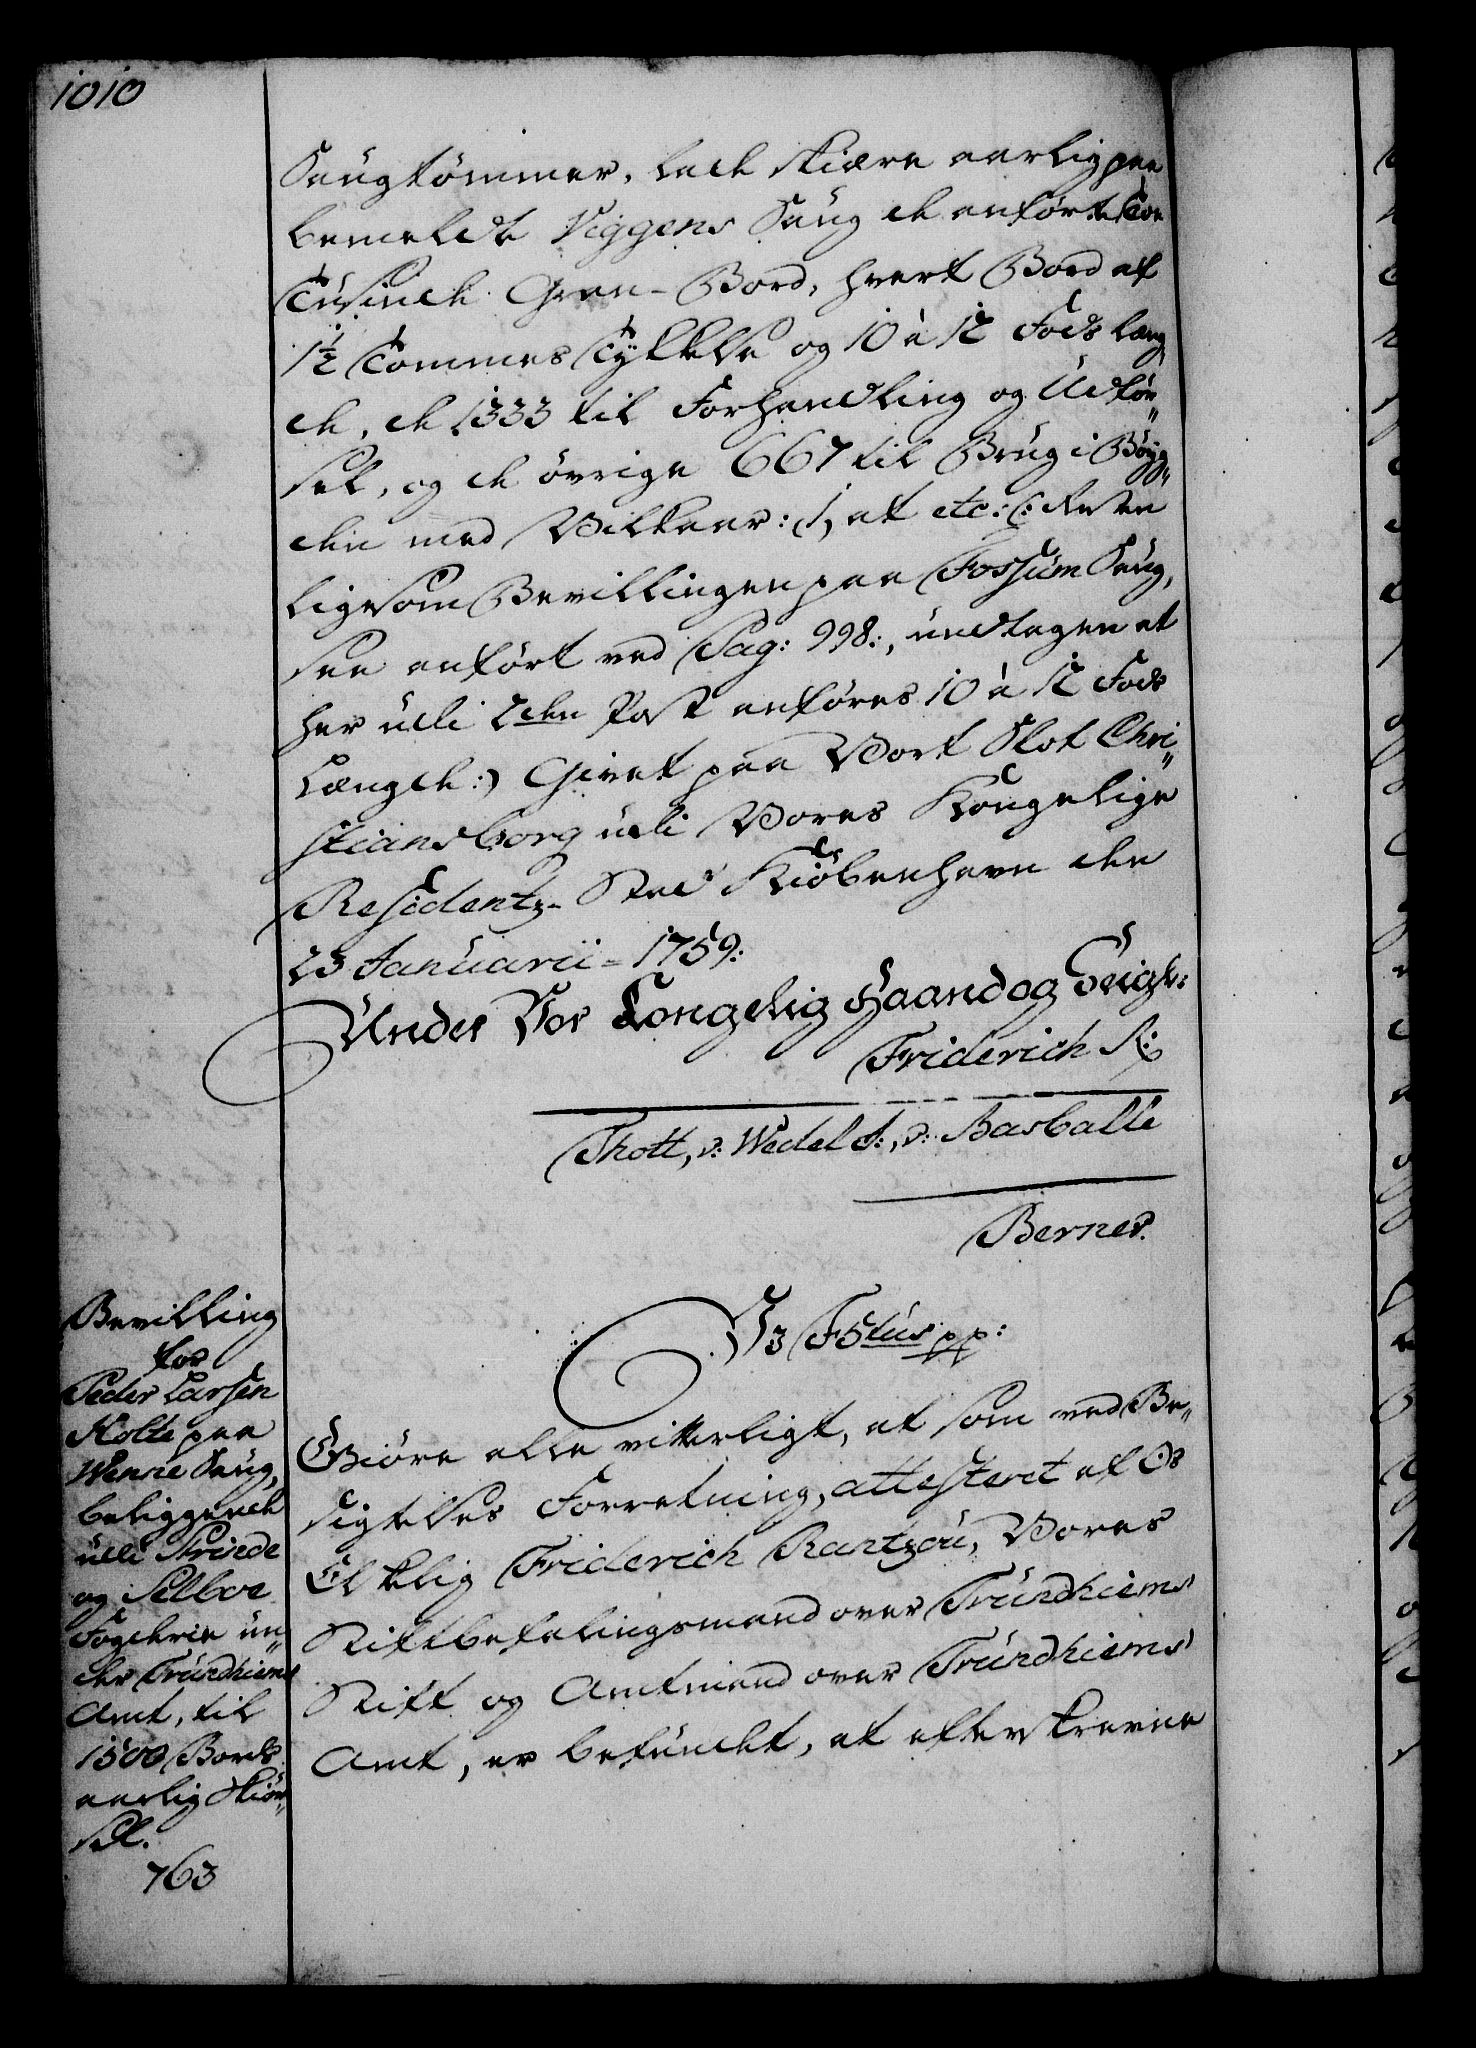 1010
Saugtømmer, lade skiære aarlig paa
bemeldte Viggens Saug de anførte Toe
Tusinde Gran-Bord, hvert Bord af
1½ Tommes Tykkelse og 10 à 12 Fods læng„
de, de 1333 til Forhandling og Udför„
sel, og de övrige 667 til Brug i Böyg„
den med Vilkaar: 1, at etc: (: Resten
ligesom Bevillingen paa Fossum Saug,
see anfört ved Pag: 998:, undtagen at
her udi 2den Post anføres 10 à 12 Fods
Længde:) Givet paa Vort Slot Chri„
stiansborg udi Vores Kongelige
Residentz-Stad Kiöbenhavn den
23 Januarii - 1759:
Under Vor Kongelig Haand og Seigl:
Friderich R:
Thott, v: Wedel F:, v: Barballe
Berner.
Bevilling
for
Peder Larsen
Holte paa
Wenne Saug,
beliggende
udi Strinde
og Selboe
Fogderie un„
der Trundhiems
Amt, til
1500 Bords
aarlig Skiör„
sel.
763
V3 F5tus pp:
Giöre alle vitterligt, at som ved Be„
sigtelses Forretning, attesteret af Os
Elskelig Friderich Rantzou, Vores
Stiftbefalingsmand over Trundhiems
Stift og Amtmand over Trundhiems
Amt, er befundet, at efterskrevne